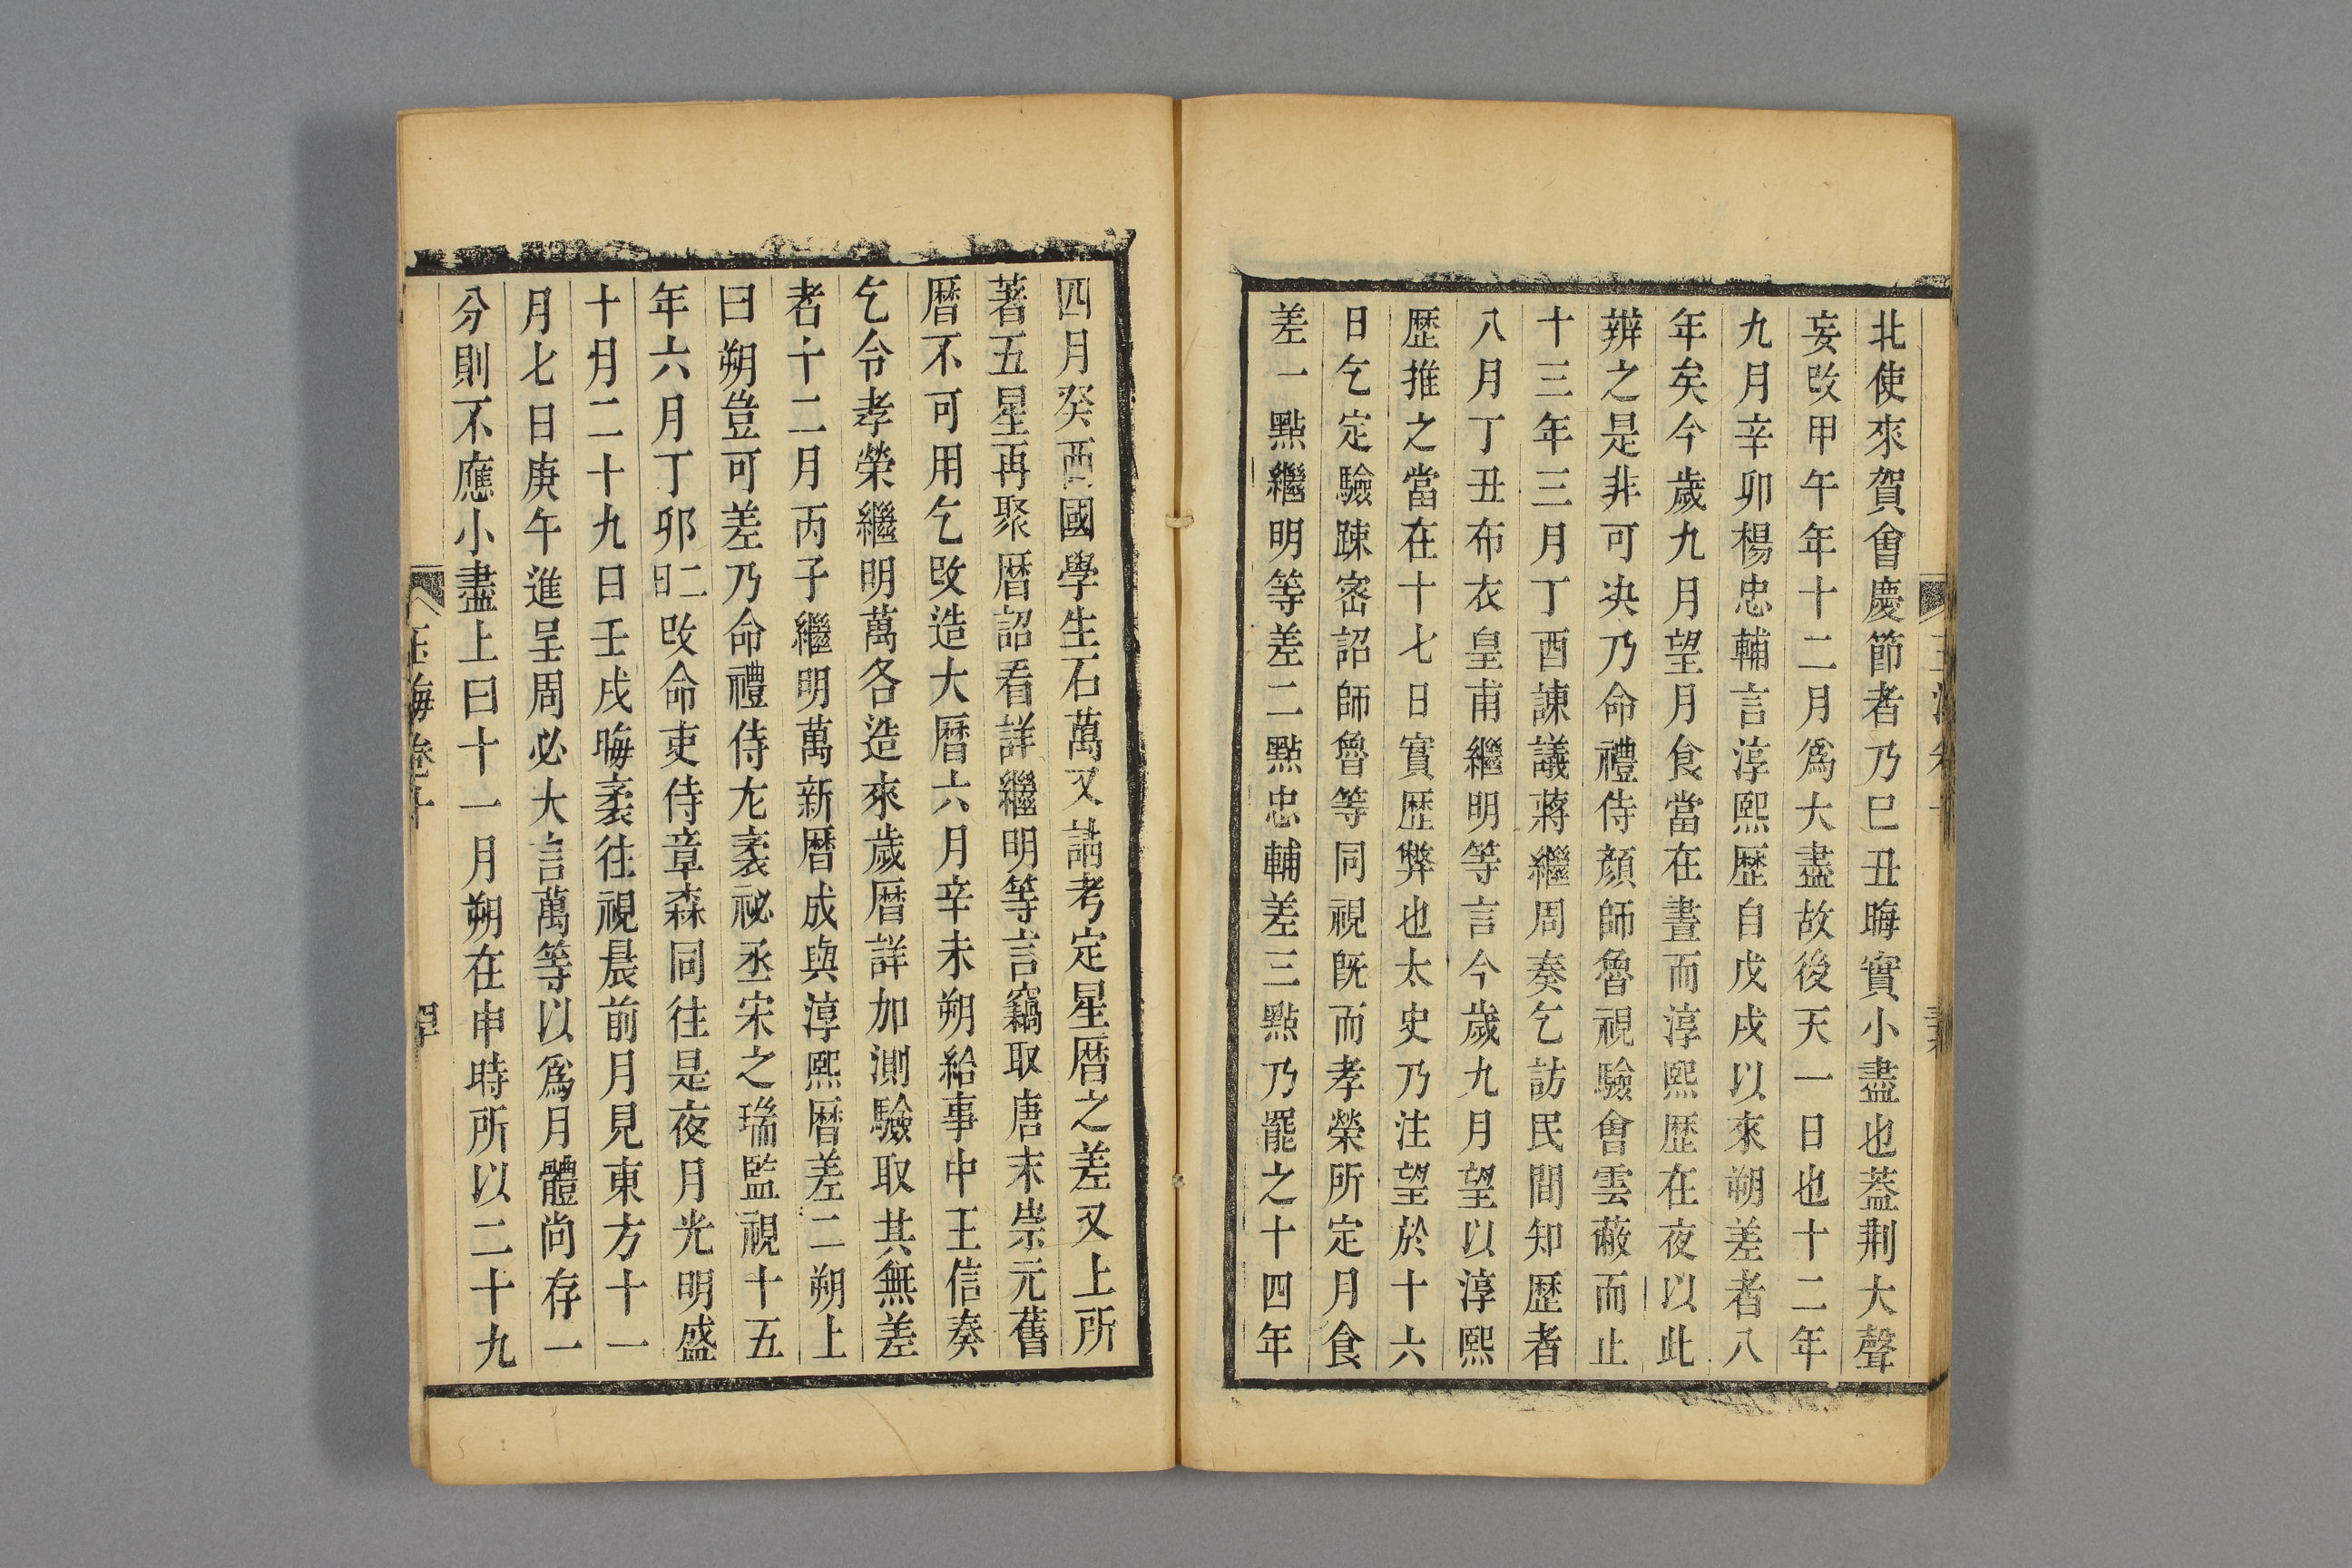 北使來賀會慶節者乃巳丑晦實小盡也葢荆大聲
妄改甲午年十二月爲大盡故後天一日也十二年
九月辛卯楊忠輔言淳熙歷自戊戌以來朔差者八
年矣今歲九月望月食當在晝而淳熙歷在夜以此
辨之是非可决乃命禮侍顏師魯視驗會雲蔽而止
十三年三月丁酉諫議蔣繼周奏乞訪民間知歷者
八月丁丑布衣皇甫繼明等言今歲九月望以淳熙
歷推之當在十七日實歷弊也太史乃注望於十六
日乞定驗踈密詔師魯等同視旣而孝榮所定月食
差一點繼明等差二點忠輔差三點乃罷之十四年
四月癸酉國學生石萬又請考定星曆之差又上所
著五星再聚曆詔看詳繼明等言竊取唐末崇元舊
曆不可用乞改造大曆六月辛未朔給事中王信奏
乞令孝榮繼明萬各造來歲曆詳加測驗取其無差
者十二月丙子繼明萬新曆成與淳熙曆差二朔上
曰朔豈可差乃命禮侍尤袤祕丞宋之瑞監視十五
年六月丁卯曰二改命吏侍章森同往是夜月光明盛
十月二十九日壬戌晦袤往視晨前月見東方十一
月七日庚午進呈周必大言萬等以爲月體尚存一
分則不應小盡上曰十一月朔在申時所以二十九
玉海卷十